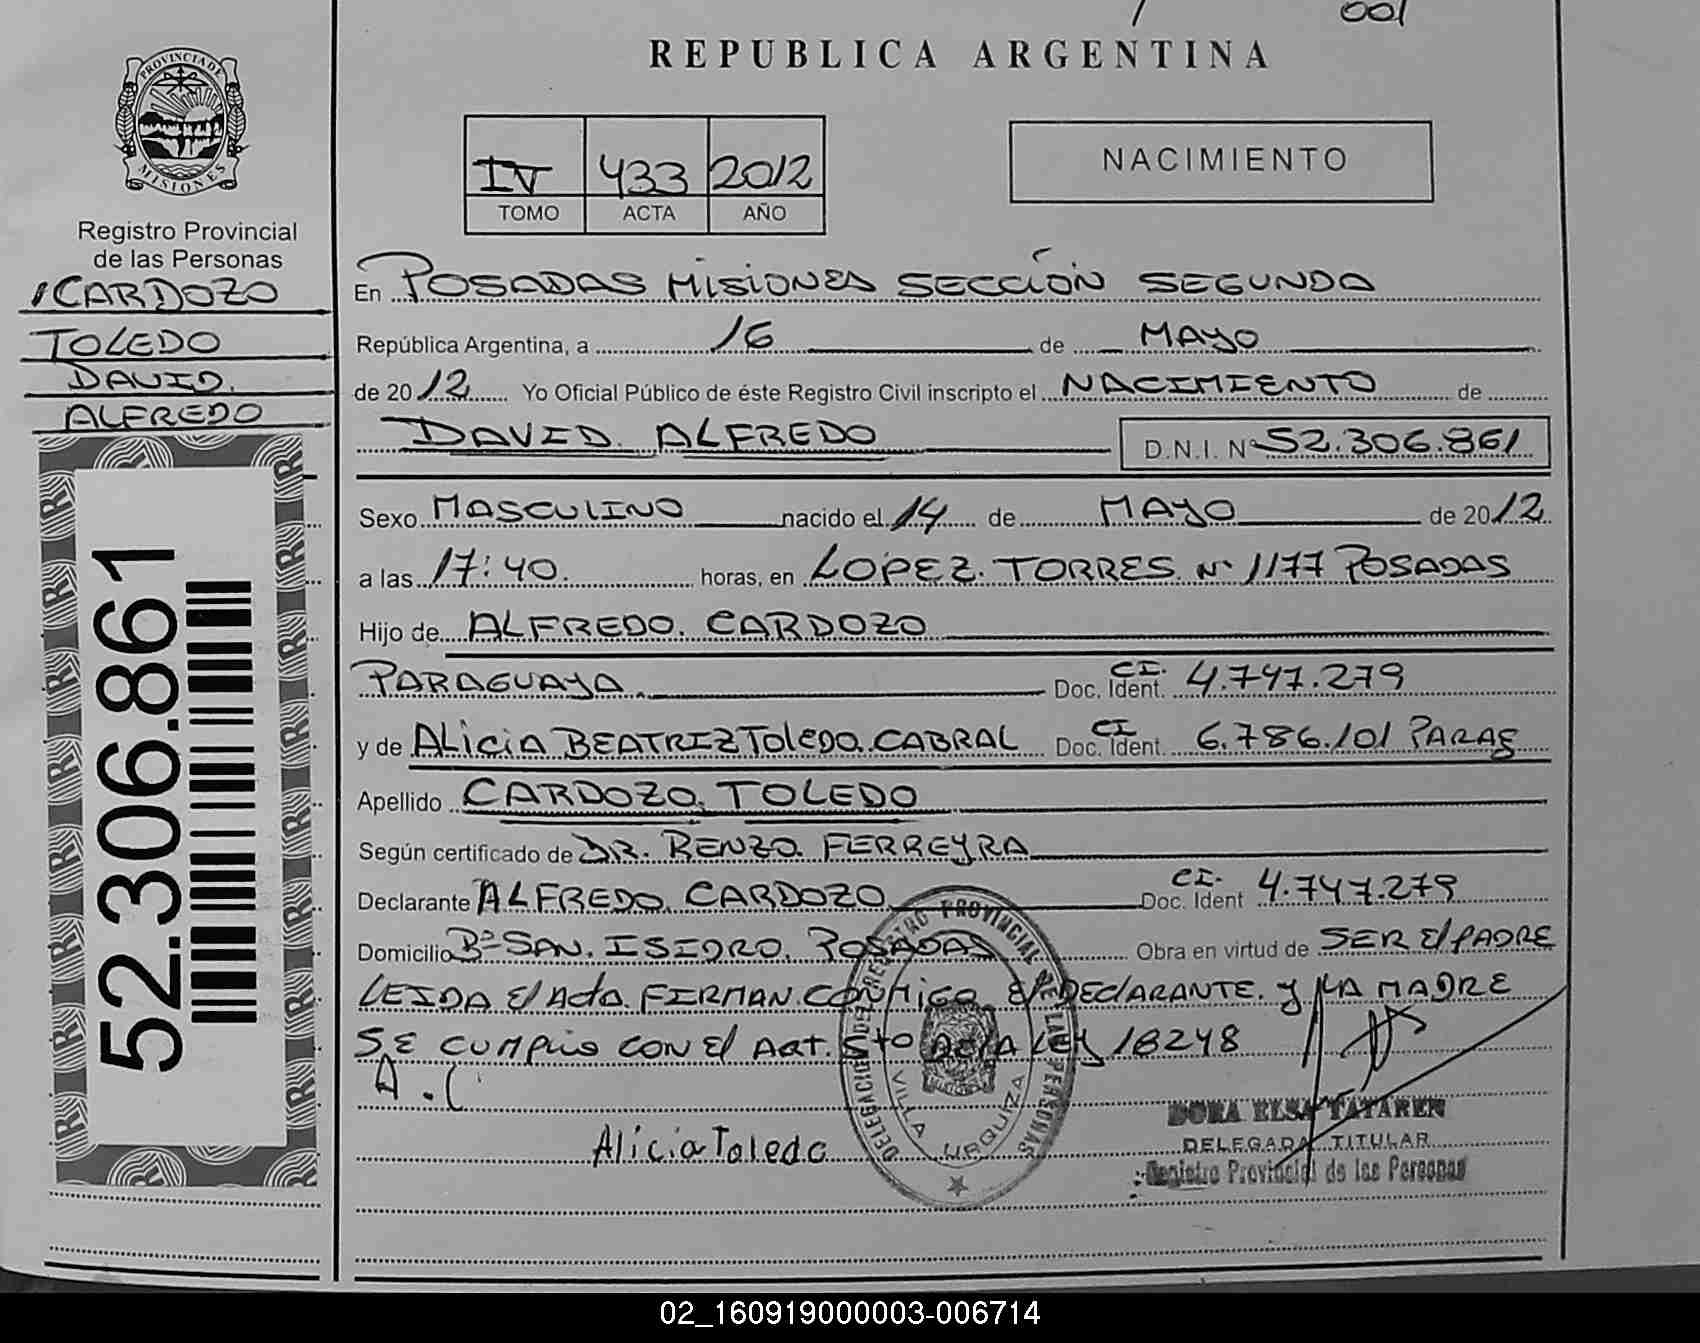 001
REPUBLICA ARGENTINA
PROVINCIA DE MISIONES
Registro Provincial
de las Personas
CARDOZO
TOLEDO
DAVID.
ALFREDO
52.306.861
IV 433 2012
TOMO ACTA AÑO
NACIMIENTO
En POSADAS MISIONES SECCIÓN SEGUNDA
República Argentina, a 16 de MAYO
de 2012 Yo Oficial Público de éste Registro Civil inscripto el NACIMIENTO de
DAVID. ALFREDO D.N.I. Nº 52.306.861
Sexo MASCULINO nacido el 14 de MAYO de 2012
a las 17:40. horas, en LOPEZ. TORRES. Nº 1177 POSADAS
Hijo de ALFREDO. CARDOZO
PARAGUAYA. Doc. Ident. CI. 4.747.279
y de ALiciA BEATRIZ TOlEDO. CABRAL Doc. Ident. CI 6.786.101 PARAG
Apellido CARDOZO. TOLEDO
Según certificado de DR. RENZO. FERREYRA
Declarante ALFREDO. CARDOZO Doc. Ident CI. 4.747.279
Domicilio Bº SAN. ISIDRO. POSADAS Obra en virtud de SER El PADRE
LEIDA El Acta. FIRMAN. CONMIGO El DEClARANTE. y LA MADRE
SE CUMPlio CON El ART. 5to DE lA LEY 18248
A . C
Alicia Toledo
DELEGACION REGISTRO PROVINCIAL DE LAS PERSONAS
VILLA URQUIZA
DORA ELSA TATAREN
DELEGADA TITULAR
Registro Provincial de las Personas
02_160919000003-006714